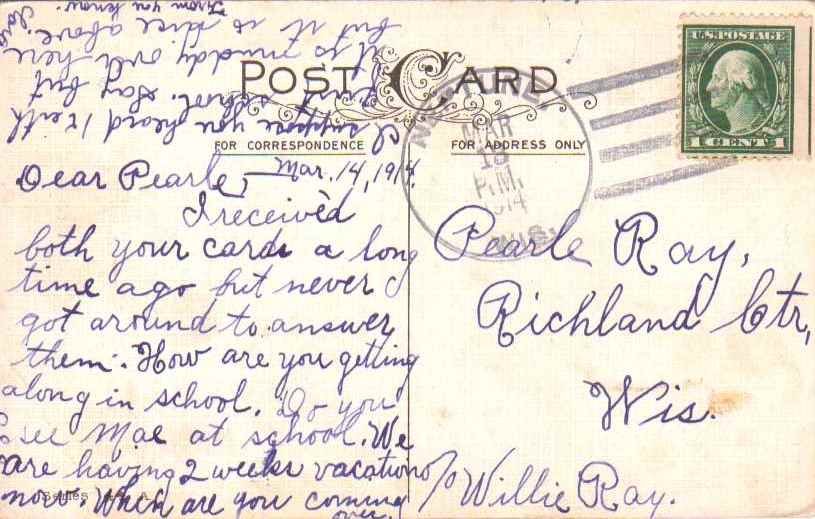 POST CARD
FOR CORRESPONDENCE
FOR ADDRESS ONLY
U.S. POSTAGE
1 CENT 1
MAR
P.M.
WIS.
Mar. 14, 1914.
Dear Pearle,
I received
both your cards a long
time ago but never
got around to answer
them. How are you getting
along in school. Do you
see Mae at school. We
are having 2 weeks vacation
now. When are you coming
over.
I suppose you heard Keith
school. Say but
it is muddy over here
but it is nice above.
From you know
Pearle Ray,
Richland Ctr,
Wis.
c/o Willie Ray.
Series